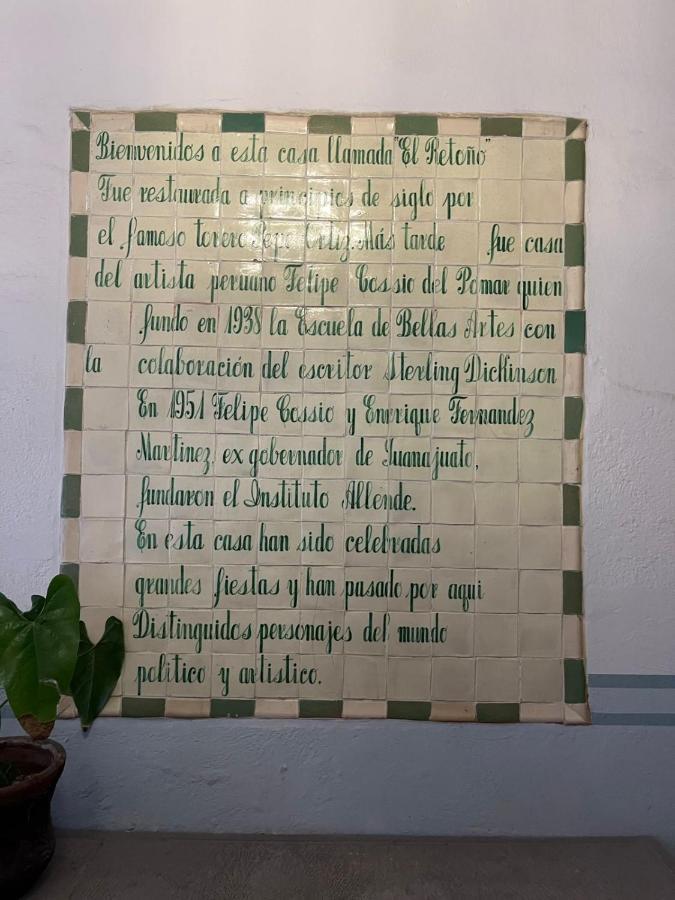 Bienvenidos a esta casa llamada "El Retoño"
Fue restaurada a principios de siglo por
el famoso torero Pepe Ortiz. Más tarde fue casa
del artista peruano Felipe Cossio del Pomar quien
fundo en 1938 la Escuela de Bellas Artes con
la colaboración del escritor Sterling Dickinson
En 1951 Felipe Cossio y Enrrique Fernandez
Martinez, ex gobernador de Guanajuato,
fundaron el Instituto Allende.
En esta casa han sido celebradas
grandes fiestas y han pasado por aqui
Distinguidos personajes del mundo
politico y artistico.